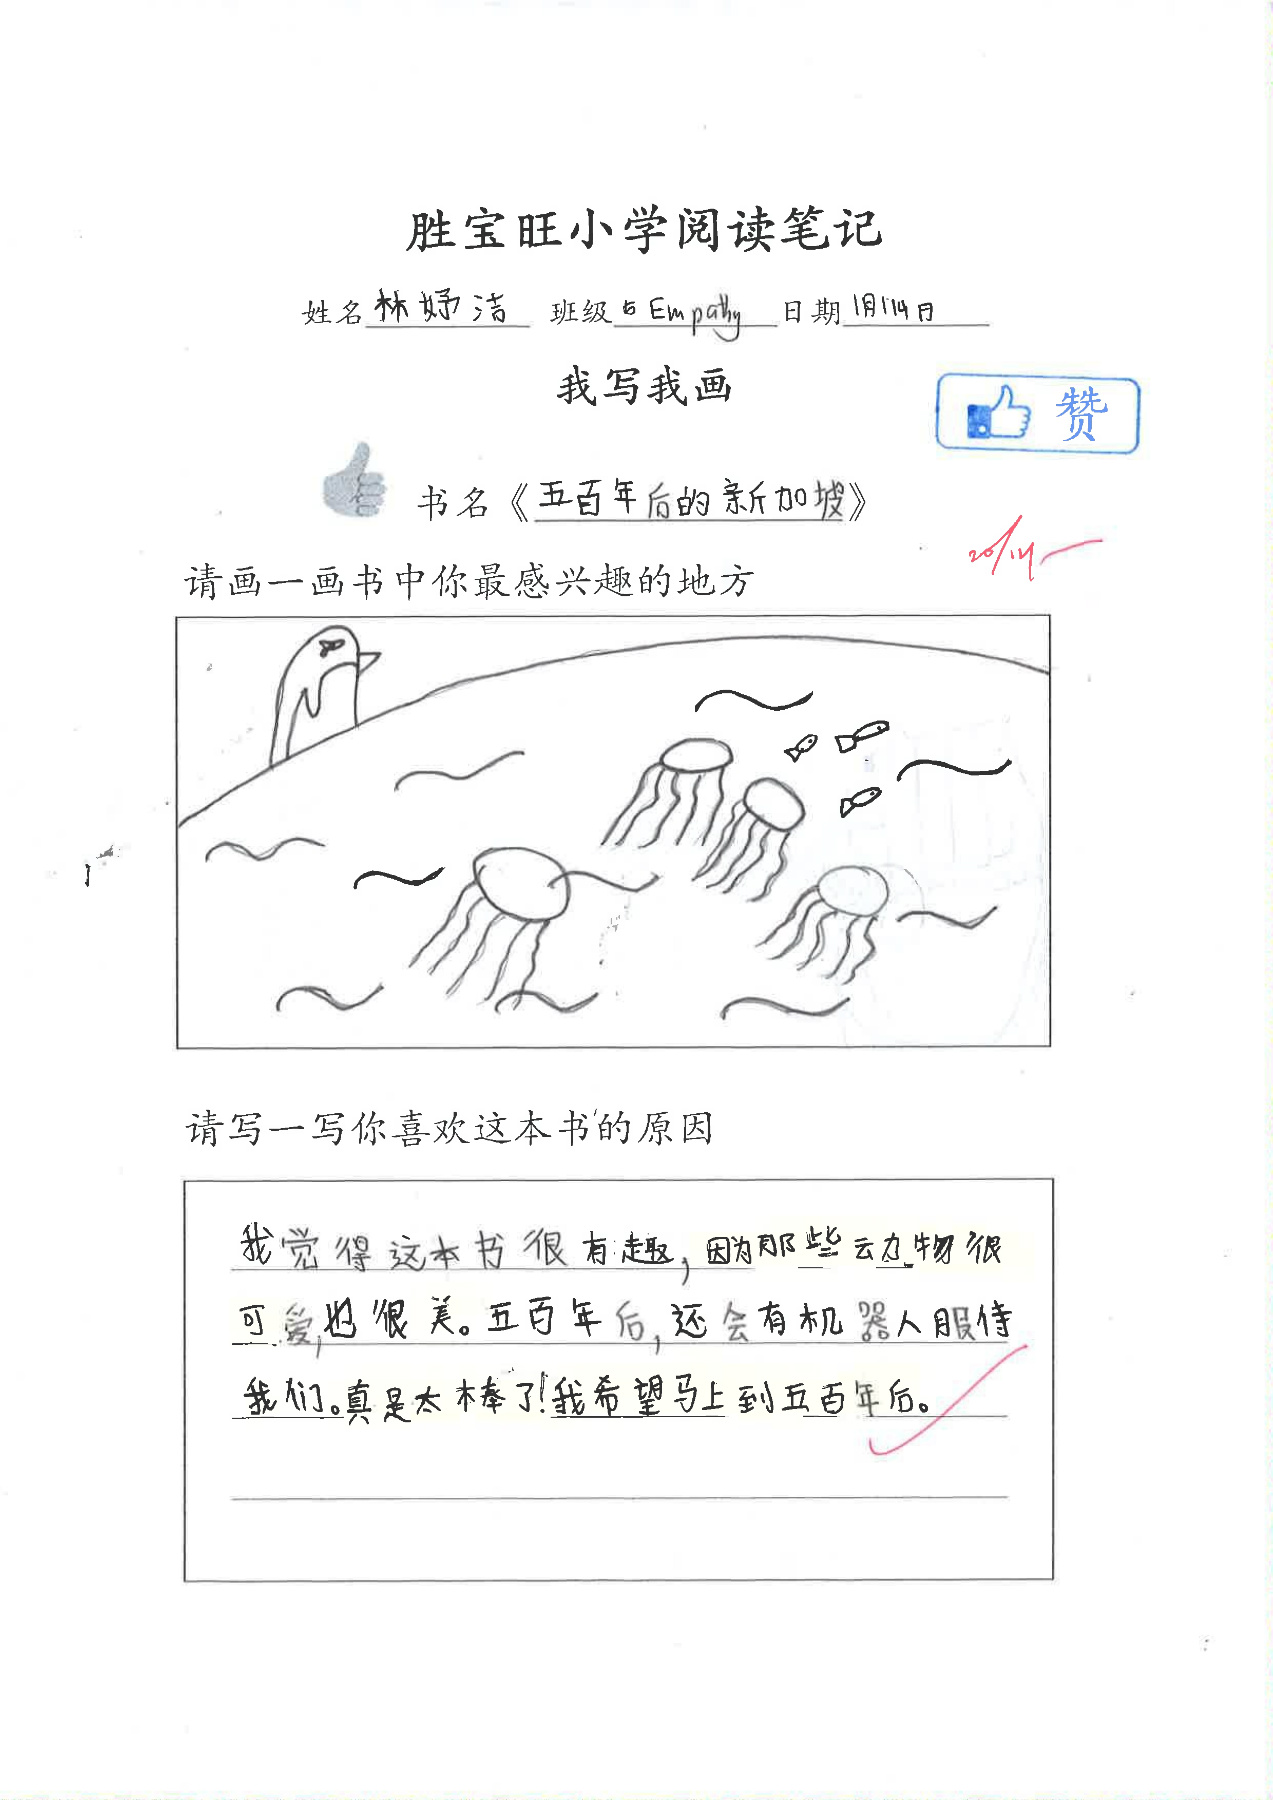 胜宝旺小学阅读笔记
姓名 林妤洁 班级 5 Empathy 日期 1月14日
我写我画
赞
书名《五百年后的新加坡》
请画一画书中你最感兴趣的地方
请写一写你喜欢这本书的原因
我觉得这本书很有趣，因为那些动物很
可爱，也很美。五百年后，还会有机器人服侍
我们。真是太棒了！我希望马上到五百年后。